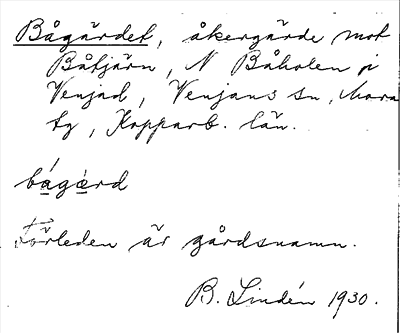 Bågärdet, åkergärde mot
Båtjärn, N Båholen i
Venjad, Venjans sn, Mora
tg, Kopparb. län.
bágàrd
Förleden är gårdsnamn.
B. Lindén 1930.